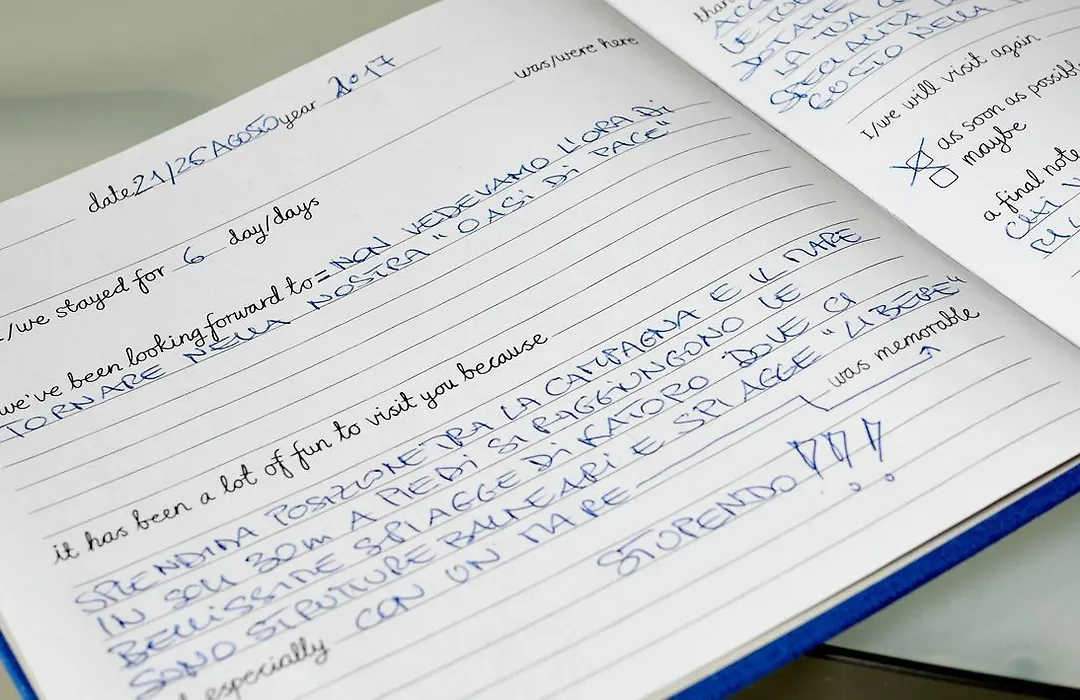 date 21/26 AGOSTO year 2017
was/were here
/we stayed for 6 day/days
we've been looking forward to = NON VEDEVAMO L'ORA DI
TORNARE NELLA NOSTRA "OASI DI PACE"
it has been a lot of fun to visit you because
SPLENDIDA POSIZIONE TRA LA CAMPAGNA E IL MARE
IN SOLI 30m A PIEDI SI RAGGIUNGONO LE
BELLISSIME SPIAGGE DI KATORO DOVE CI
SONO STRUTTURE BALNEARI E SPIAGGE "LIBERE"
especially CON UN MARE was memorable
STUPENDO!!!
LE
LA TUA
SPECIALITÀ
GUSTO NELLA
I/we will visit again
as soon as possible
maybe
a final note